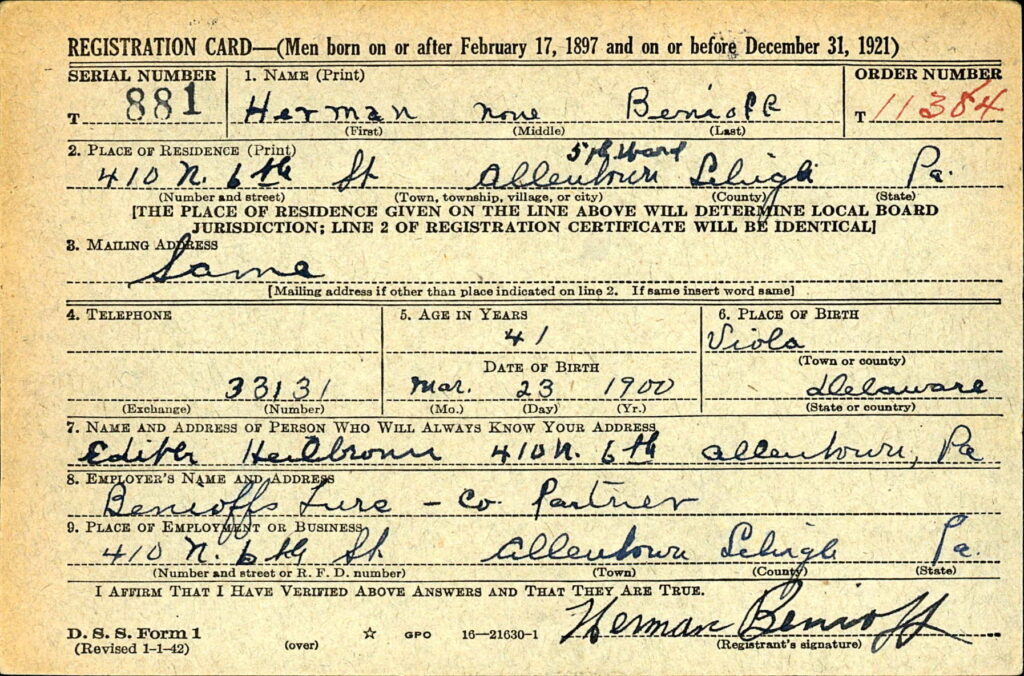 REGISTRATION CARD—(Men born on or after February 17, 1897 and on or before December 31, 1921)
SERIAL NUMBER 1. NAME (Print) ORDER NUMBER
T 881 Herman none Benioff T 11384
(First) (Middle) (Last)
2. PLACE OF RESIDENCE (Print)
5th Ward
410 N. 6th St Allentown Lehigh Pa.
(Number and street) (Town, township, village, or city) (County) (State)
[THE PLACE OF RESIDENCE GIVEN ON THE LINE ABOVE WILL DETERMINE LOCAL BOARD
JURISDICTION; LINE 2 OF REGISTRATION CERTIFICATE WILL BE IDENTICAL]
3. MAILING ADDRESS
Same
[Mailing address if other than place indicated on line 2. If same insert word same]
4. TELEPHONE 5. AGE IN YEARS 6. PLACE OF BIRTH
41 Viola
DATE OF BIRTH (Town or county)
33131 Mar. 23 1900 Delaware
(Exchange) (Number) (Mo.) (Day) (Yr.) (State or country)
7. NAME AND ADDRESS OF PERSON WHO WILL ALWAYS KNOW YOUR ADDRESS
Edith Heilbronn 410 N. 6th Allentown, Pa
8. EMPLOYER'S NAME AND ADDRESS
Benioffs Furs - Co Partner
9. PLACE OF EMPLOYMENT OR BUSINESS
410 N. 6th St Allentown Lehigh Pa.
(Number and street or R. F. D. number) (Town) (County) (State)
I AFFIRM THAT I HAVE VERIFIED ABOVE ANSWERS AND THAT THEY ARE TRUE.
Herman Benioff
D. S. S. Form 1 (over) ☆ GPO 16—21630-1 (Registrant's signature)
(Revised 1-1-42)